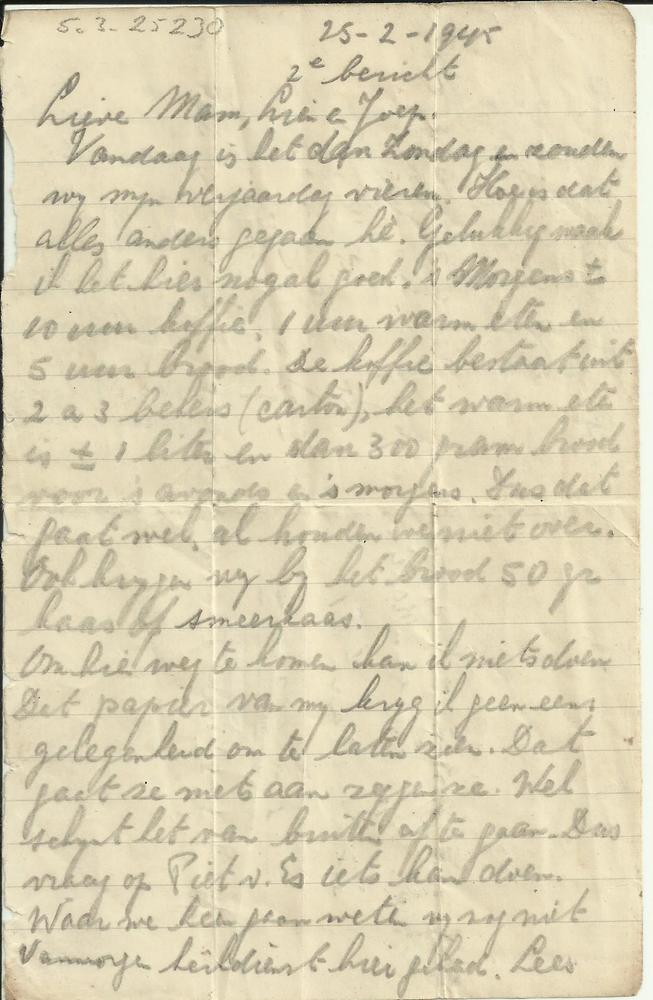 5.3-25230
25-2-1945
2e bericht
Lieve Mam, Lien en Joep.
Vandaag is het dan Zondag en zouden
wy myn verjaardag vieren. Hoe is dat
alles anders gegaan hè. Gelukkig maak
ik het hier nogal goed. 's Morgens ±
10 uur koffie, 1 uur warm eten en
5 uur brood. De koffie bestaat uit
2 a 3 bekers (carton), het warm eten
is ± 1 liter en dan 300 gram brood
voor 's avonds en 's morgens. Dus dat
gaat wel, al houden we niet over.
Ook krygen wy by het brood 50 gr
kaas of smeerkaas.
Om hier weg te komen kan ik niets doen
Dat papier van my kryg ik geen eens
gelegenheid om te laten zien. Dat
gaat ze niet aan zeggen ze. Wel
schynt het van buiten af te gaan. Dus
vraag op Piet v. Es iets kan doen.
Waar we heen gaan weten wy nog niet
Vanmorgen kerkdienst hier gehad. Lees